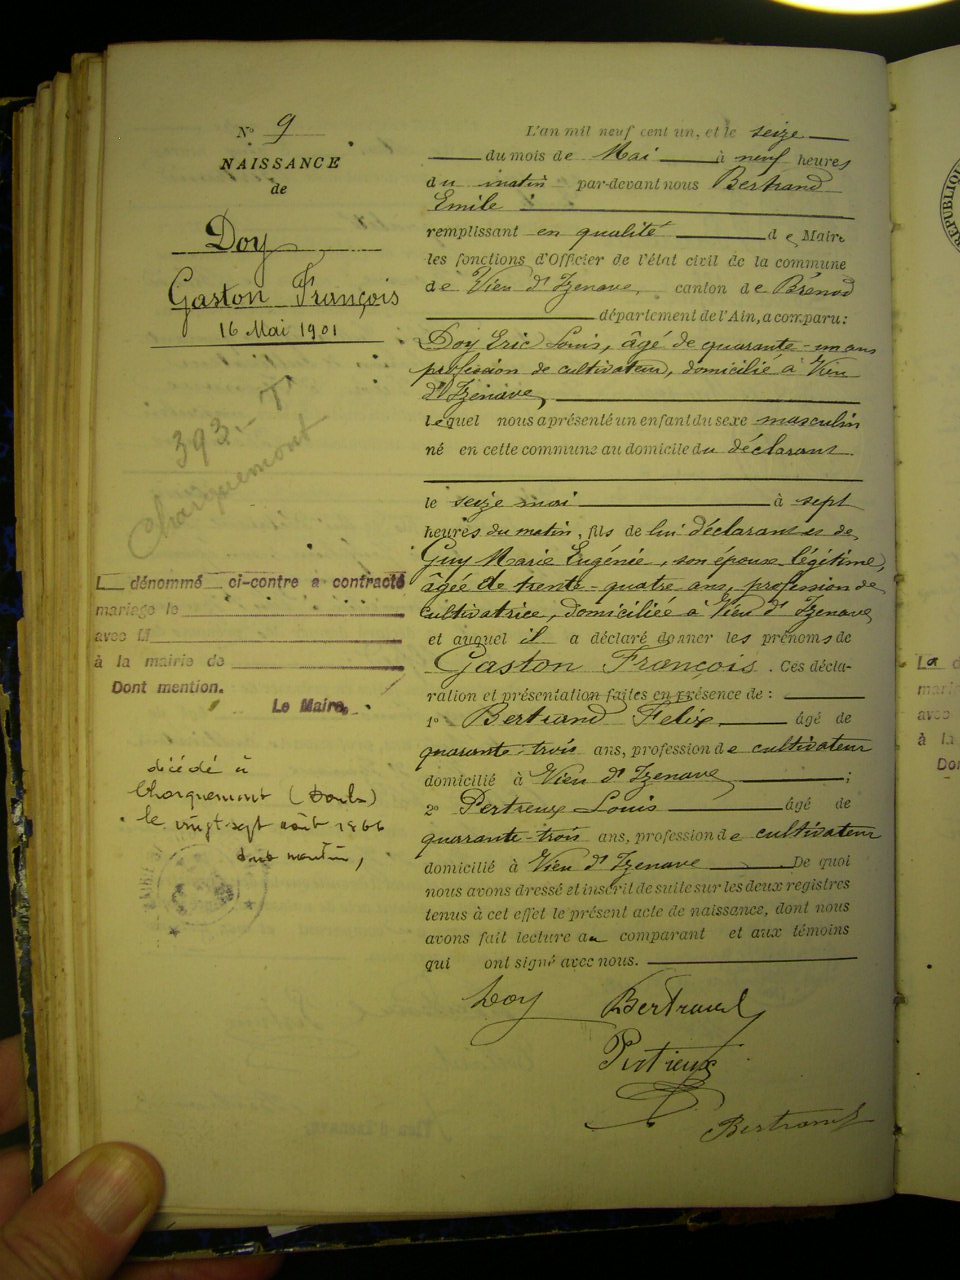 N° 9
NAISSANCE
de
Doy
Gaston François
16 Mai 1901
393
Charquemont
L dénommé ci-contre a contracté
mariage le
avec M
à la mairie de
Dont mention.
Le Maire,
décédé à
Charquemont (Doubs)
le vingt-sept août 1966
L'an mil neuf cent un, et le seize
du mois de Mai à neuf heures
du matin par-devant nous Bertrand
Emile
remplissant en qualité de Maire
les fonctions d'Officier de l'état civil de la commune
de Vieu d'Izenave, canton de Brénod
département de l'Ain, a comparu :
Doy Eric Louis, âgé de quarante-un ans
profession de cultivateur, domicilié à Vieu
d'Izenave,
lequel nous a présenté un enfant du sexe masculin
né en cette commune au domicile du déclarant
le seize mai à sept
heures du matin, fils de lui déclarant et de
Guy Marie Eugénie, son épouse légitime,
âgée de trente-quatre ans, profession de
cultivatrice, domiciliée à Vieu d'Izenave
et auquel il a déclaré donner les prénoms de
Gaston François. Ces décla-
ration et présentation faites en présence de :
1° Bertrand Felix âgé de
quarante-trois ans, profession de cultivateur
domicilié à Vieu d'Izenave ;
2° Pertreux Louis âgé de
quarante-trois ans, profession de cultivateur
domicilié à Vieu d'Izenave De quoi
nous avons dressé et inscrit de suite sur les deux registres
tenus à cet effet le présent acte de naissance, dont nous
avons fait lecture au comparant et aux témoins
qui ont signé avec nous.
Doy Bertrand
Bertrand
REPUBLIQUE